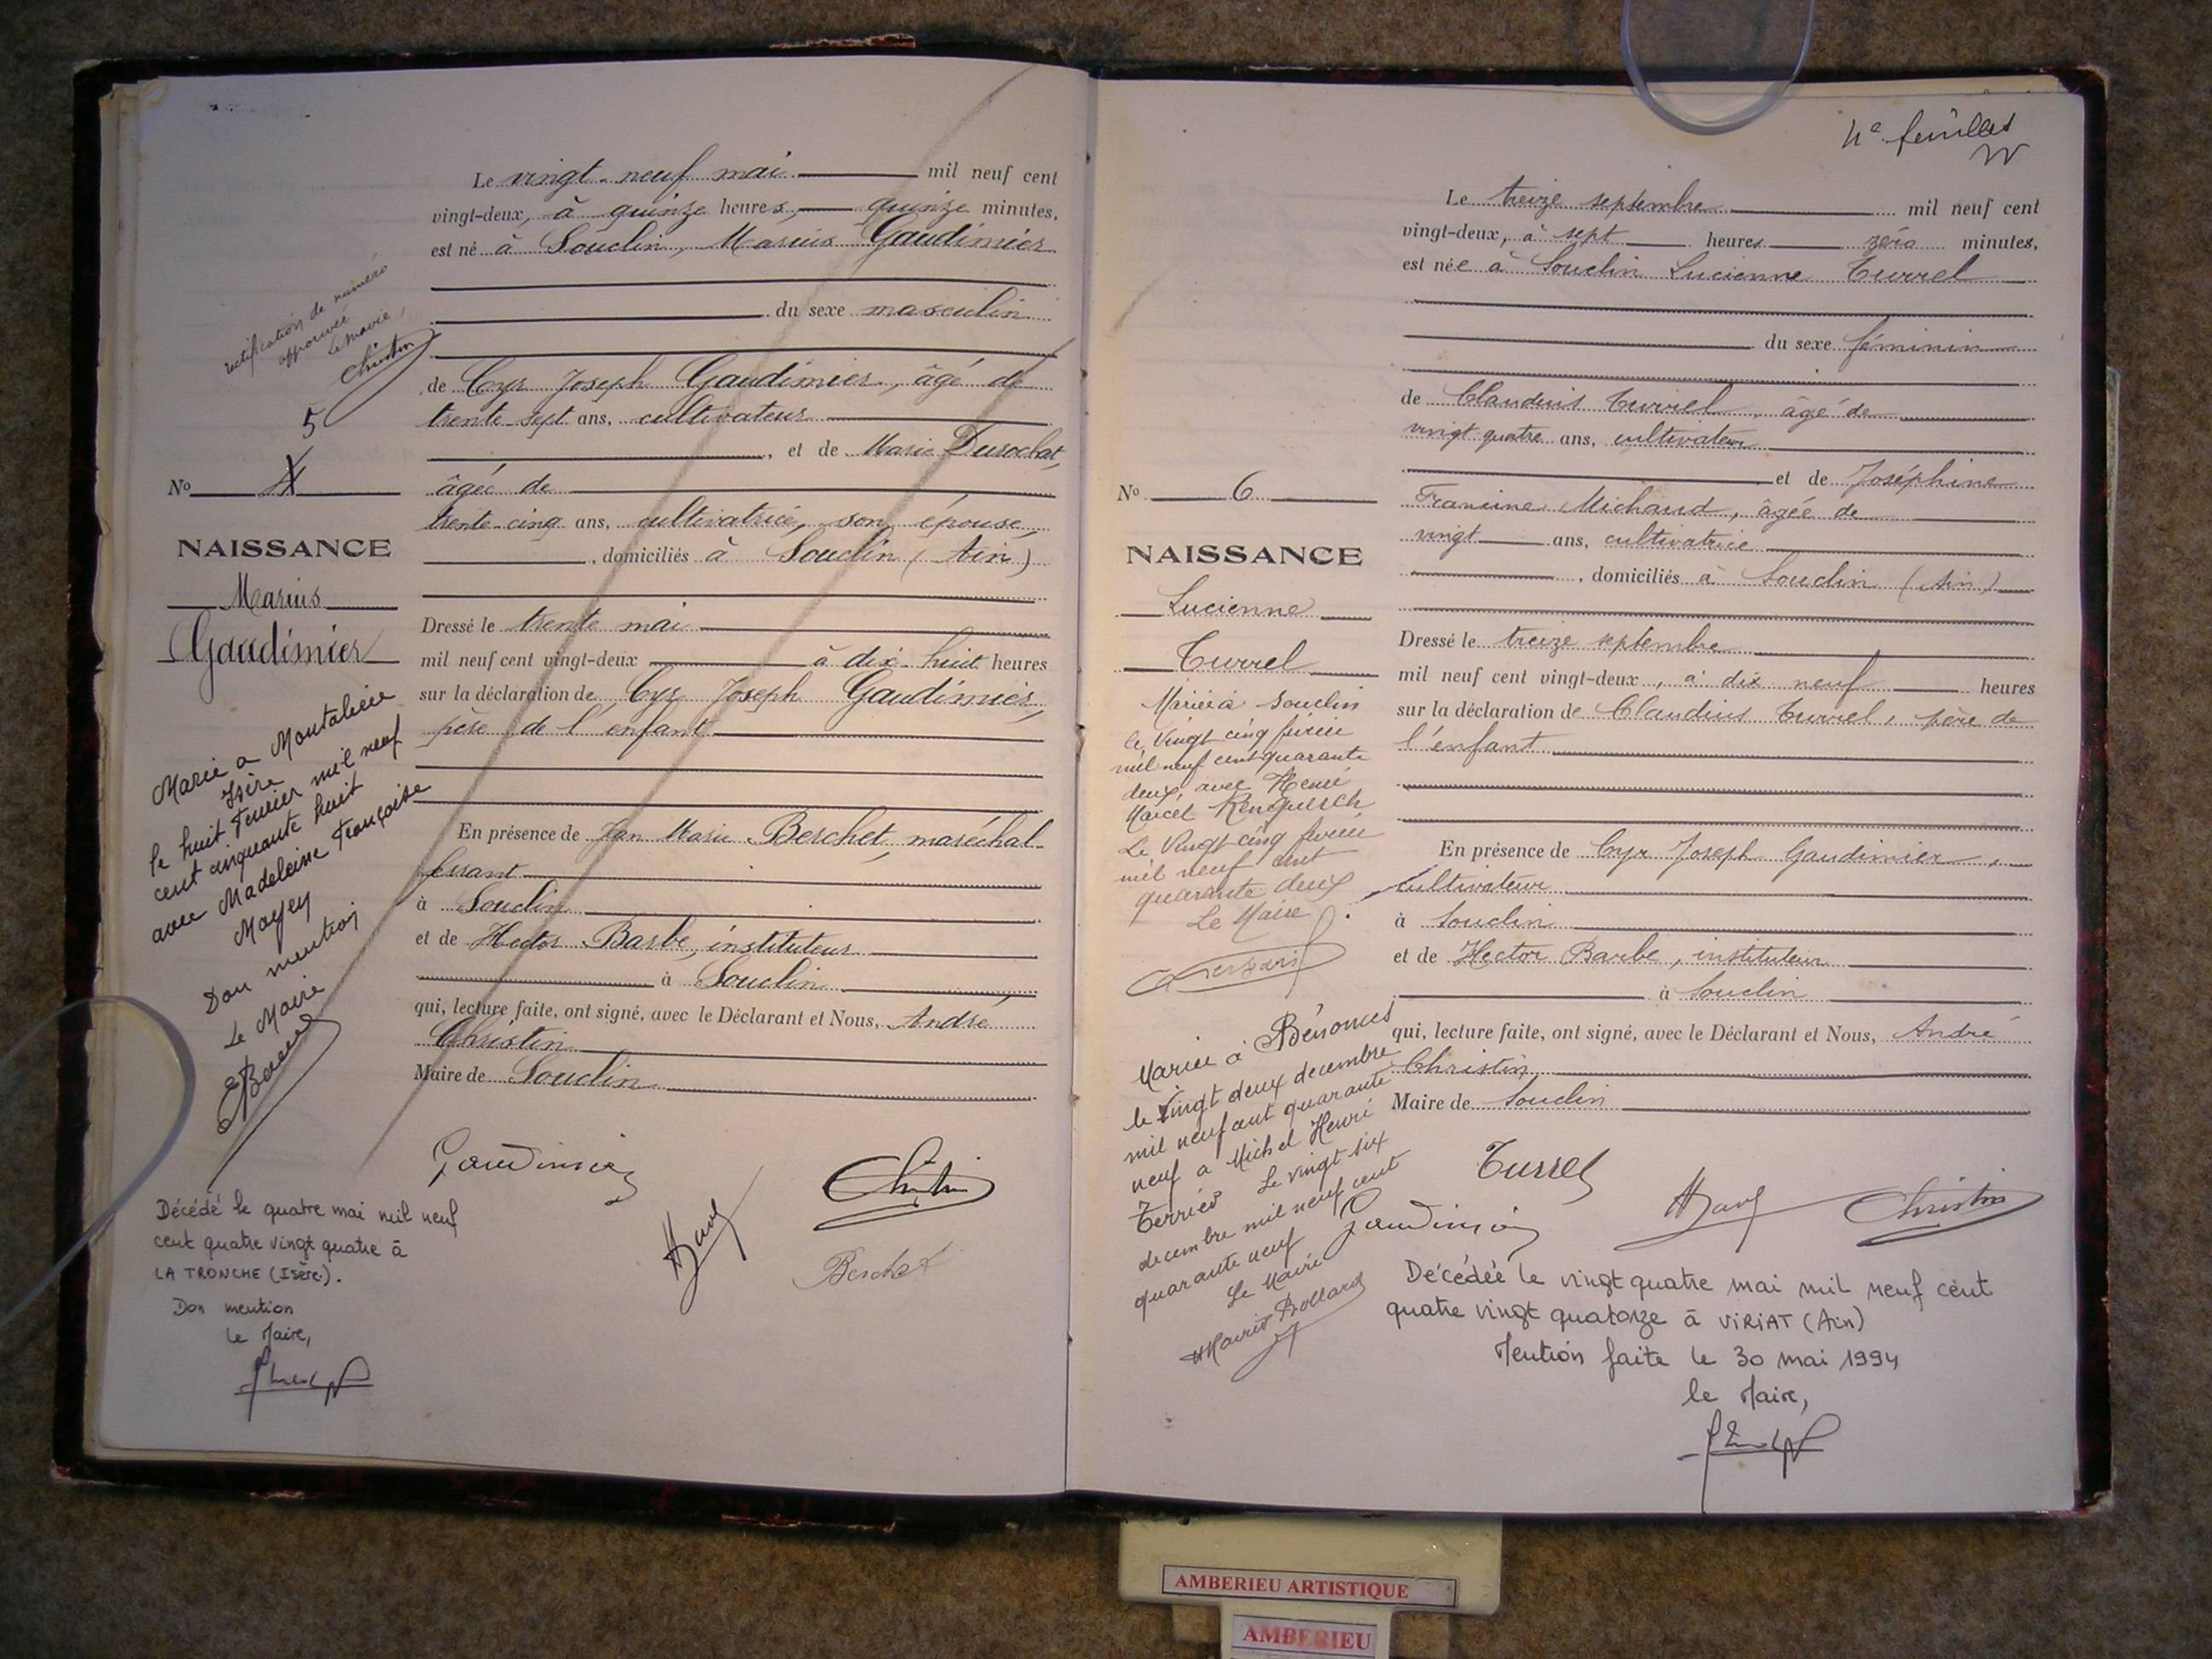 Le vingt-neuf mai mil neuf cent
vingt-deux, à quinze heures, quinze minutes,
est né à Souclin, Marius Gaudimier
du sexe masculin
rectification de numéro
approuvée
Le maire,
Christin
de Cyr Joseph Gaudimier, âgé de
trente-sept ans, cultivateur
, et de Marie Durochat,
5
No 4
âgée de
trente-cinq ans, cultivatrice, son épouse,
NAISSANCE
, domiciliés à Souclin (Ain)
Marius
Gaudimier
Dressé le trente mai
mil neuf cent vingt-deux à dix-huit heures
sur la déclaration de Cyr Joseph Gaudimier,
père de l'enfant
Marié a Montalieu
Isère
le huit Fevrier mil neuf
cent cinquante huit
avec Madeleine Françoise
Mayen
Don mention
Le Maire
En présence de Jean Marie Berchet, maréchal-
ferrant
à Souclin
et de Hector Barbe, instituteur
à Souclin
qui, lecture faite, ont signé, avec le Déclarant et Nous, André
Christin
Maire de Souclin
Gaudimier
Christin
Berchet
Décédé le quatre mai mil neuf
cent quatre vingt quatre à
LA TRONCHE (Isère).
Don mention
Le Maire,
4e feuillet
Le treize septembre mil neuf cent
vingt-deux, à sept heures zéro minutes,
est née à Souclin Lucienne Turrel
du sexe féminin
de Claudius Turrel, âgé de
vingt quatre ans, cultivateur
et de Joséphine
No 6
Francine Michaud, âgée de
vingt ans, cultivatrice
NAISSANCE
, domiciliés à Souclin (Ain)
Lucienne
Turrel
Dressé le treize septembre
mil neuf cent vingt-deux, à dix neuf heures
sur la déclaration de Claudius Turrel, père de
l'enfant
Mariée à Souclin
le Vingt cinq février
mil neuf cent quarante
deux, avec Henri
Marcel
Le Vingt cinq février
mil neuf cent
quarante deux
Le Maire
En présence de Cyr Joseph Gaudimier,
cultivateur
à Souclin
et de Hector Barbe, instituteur
à Souclin
qui, lecture faite, ont signé, avec le Déclarant et Nous, André
Christin
Maire de Souclin
Mariée à Bénonces
le Vingt deux decembre
mil neuf cent quarante
neuf a Michel Henri
Terrier Le vingt six
decembre mil neuf cent
quarante neuf
Le Maire
Turrel
Gaudimier
Christin
Décédée le vingt quatre mai mil neuf cent
quatre vingt quatorze à VIRIAT (Ain)
Mention faite le 30 mai 1994
le Maire,
AMBERIEU ARTISTIQUE
AMBERIEU